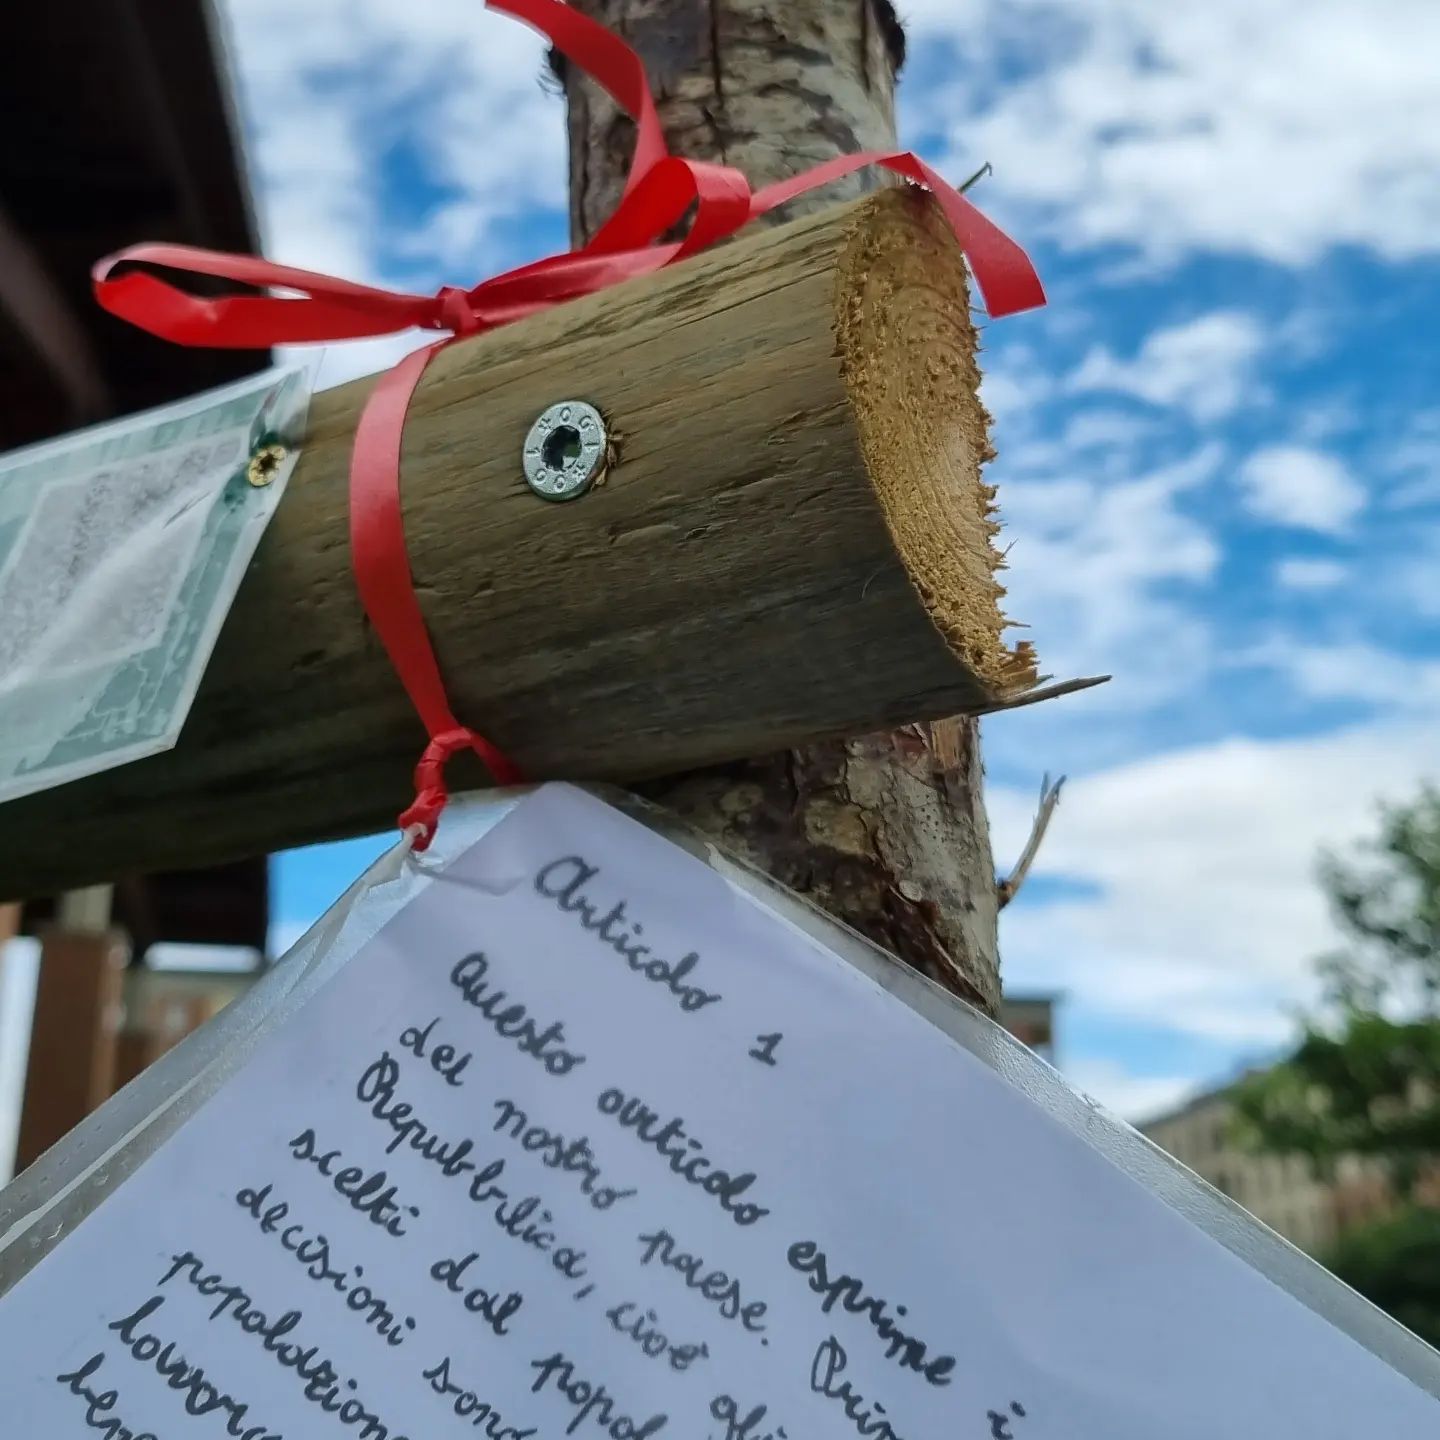 Articolo 1
Questo articolo esprime i
del nostro paese.
Repubblica, cioè
scelti dal popol
decisioni sono
popolazion
lavor
ben